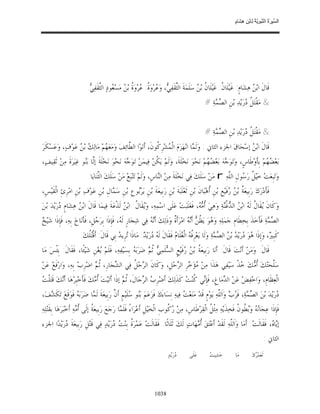 السّيرَة النّبَويّة لابْن هِشام
قَالَ ابْنُ هِشَامٍ: غَيْلَانُ: غَيْلَانُ بْنُ سَلَمَةَ الثّقَفِيّ، وَعُرْوَةُ: عُرْوَةُ بْنُ مَسْعُودٍ الثّقَفِيّ
& مَقْتَلُ دُرَيْدِ بْنِ الصّمّةِ #
& مَقْتَلُ دُرَيْدِ بْنِ الصّمّةِ #
قَالَ ابْنُ إسْحَاقَ الجزء الثاني: وَلَمّا انْهَزَمَ الْمُشْرِكُونَ، أَتَوْا الطّائِفَ وَمَعَهُمْ مَالِكُ بْنُ عَوْفٍ، وَعَسْكَرَ
بَعْضُهُمْ بِأَوْطَاسٍ، وَتَوَجّهَ بَعْضُهُمْ نَحْوَ نَخْلَةَ، وَلَمْ يَكُنْ فِيمَنْ تَوَجّهَ نَحْوَ نَخْلَةَ إلّا بَنُو غِيَرَةَ مِنْ ثَقِيفٍ،
وَتَبِعَتْ خَيْلُ رَسُولِ اللّهِ r مَنْ سَلَكَ فِي نَخْلَةَ مِنْ النّاسِ، وَلَمْ تَتْبَعْ مَنْ سَلَكَ الثّنَايَا
فَأَدْرَكَ رَبِيعَةُ بْنُ رُفَيْعِ بْنِ أُهْبَانَ بْنِ ثَعْلَبَةَ بْنِ رَبِيعَةَ بْنِ يَرْبُوعِ بْنِ سَمّالِ بْنِ عَوْفِ بْنِ امْرِئِ الْقَيْسِ،
وَكَانَ يُقَالُ لَهُ ابْنُ الدّغُنّةِ وَهِيَ أُمّهُ، فَغَلَبَتْ عَلَى اسْمِهِ، وَيُقَالُ: ابْنُ لَذْعَةَ فِيمَا قَالَ ابْنُ هِشَامٍ دُرَيْدَ بْنَ
الصّمّةِ فَأَخَذَ بِخِطَامِ جَمَلِهِ وَهُوَ يَظُنّ أَنّهُ امْرَأَةٌ وَذَلِكَ أَنّهُ فِي شِجَارٍ لَهُ، فَإِذَا بِرَجُلٍ، فَأَنَاخَ بِهِ، فَإِذَا شَيْخٌ
كَبِيرٌ، وَإِذَا هُوَ دُرَيْدُ بْنُ الصّمّةِ وَلَا يَعْرِفُهُ الْغُلَامُ فَقَالَ لَهُ دُرَيْدٌ: مَاذَا تُرِيدُ بِي قَالَ: أَقْتُلُكَ
قَالَ: وَمَنْ أَنْتَ قَالَ: أَنَا رَبِيعَةُ بْنُ رُفَيْعٍ السّلَمِيّ ثُمّ ضَرَبَهُ بِسَيْفِهِ، فَلَمْ يُغْنِ شَيْئًا، فَقَالَ: بِئْسَ مَا
سَلّحَتْكَ أُمّكَ خُذْ سَيْفِي هَذَا مِنْ مُؤَخّرِ الرّحْلِ، وَكَانَ الرّحْلُ فِي الشّجَارِ، ثُمّ اضْرِبْ بِهِ، وَارْفَعْ عَنْ
الْعِظَامِ، وَاخْفِضْ عَنْ الدّمَاغِ، فَإِنّي كُنْتُ كَذَلِكَ أَضْرِبُ الرّجَالَ، ثُمّ إذَا أَتَيْتَ أُمّكَ فَأَخْبِرْهَا أَنّكَ قَتَلْتَ
دُرَيْدَ بْنَ الصّمّةِ، فَرُبّ وَاَللّهِ يَوْمٍ قَدْ مَنَعْتُ فِيهِ نِسَاءَكَ فَزَعَمَ بَنُو سُلَيْمٍ أَنّ رَبِيعَةَ لَمّا ضَرَبَهُ فَوَقَعَ تَكَشّفَ،
فَإِذَا عِجَانُهُ وَبُطُونُ فَخِذَيْهِ مِثْلُ الْقِرْطَاسِ، مِنْ رُكُوبِ الْخَيْلِ أَعْرَاءً فَلَمّا رَجَعَ رَبِيعَةُ إلَى أُمّهِ أَخْبَرَهَا بِقَتْلِهِ
إيّاهُ، فَقَالَتْ: أَمَا وَاَللّهِ لَقَدْ أَعْتَقَ أُمّهَاتٍ لَكَ ثَلَاثًا: فَقَالَتْ عَمْرَةُ بِنْتُ دُرَيْدٍ فِي قَتْلِ رَبِيعَةَ دُرَيْدًا الجزء
الثاني:
لَعَمْرُك مَا خَشِيتُ عَلَى دُرَيْدٍ
1038